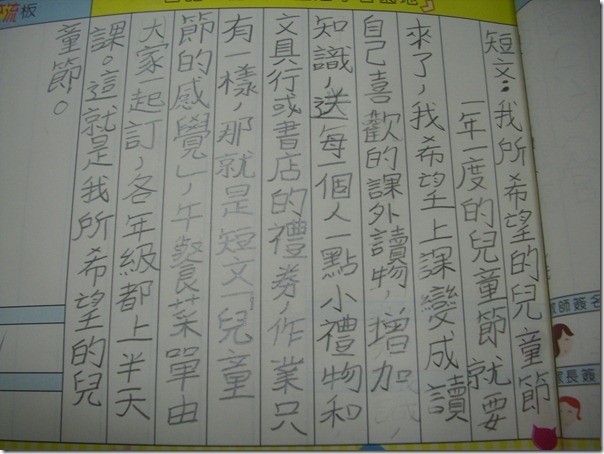 短文：我所希望的兒童節
一年一度的兒童節就要
來了，我希望上課變成讀
自己喜歡的課外讀物，增加
知識，送每一個人一點小禮物和
文具行或書店的禮券，作業只
有一樣，那就是短文「兒童
節的感覺」，午餐菜單由
大家一起訂，各年級都上半天
課。這就是我所希望的兒
童節。
流板
師簽名
長簽名